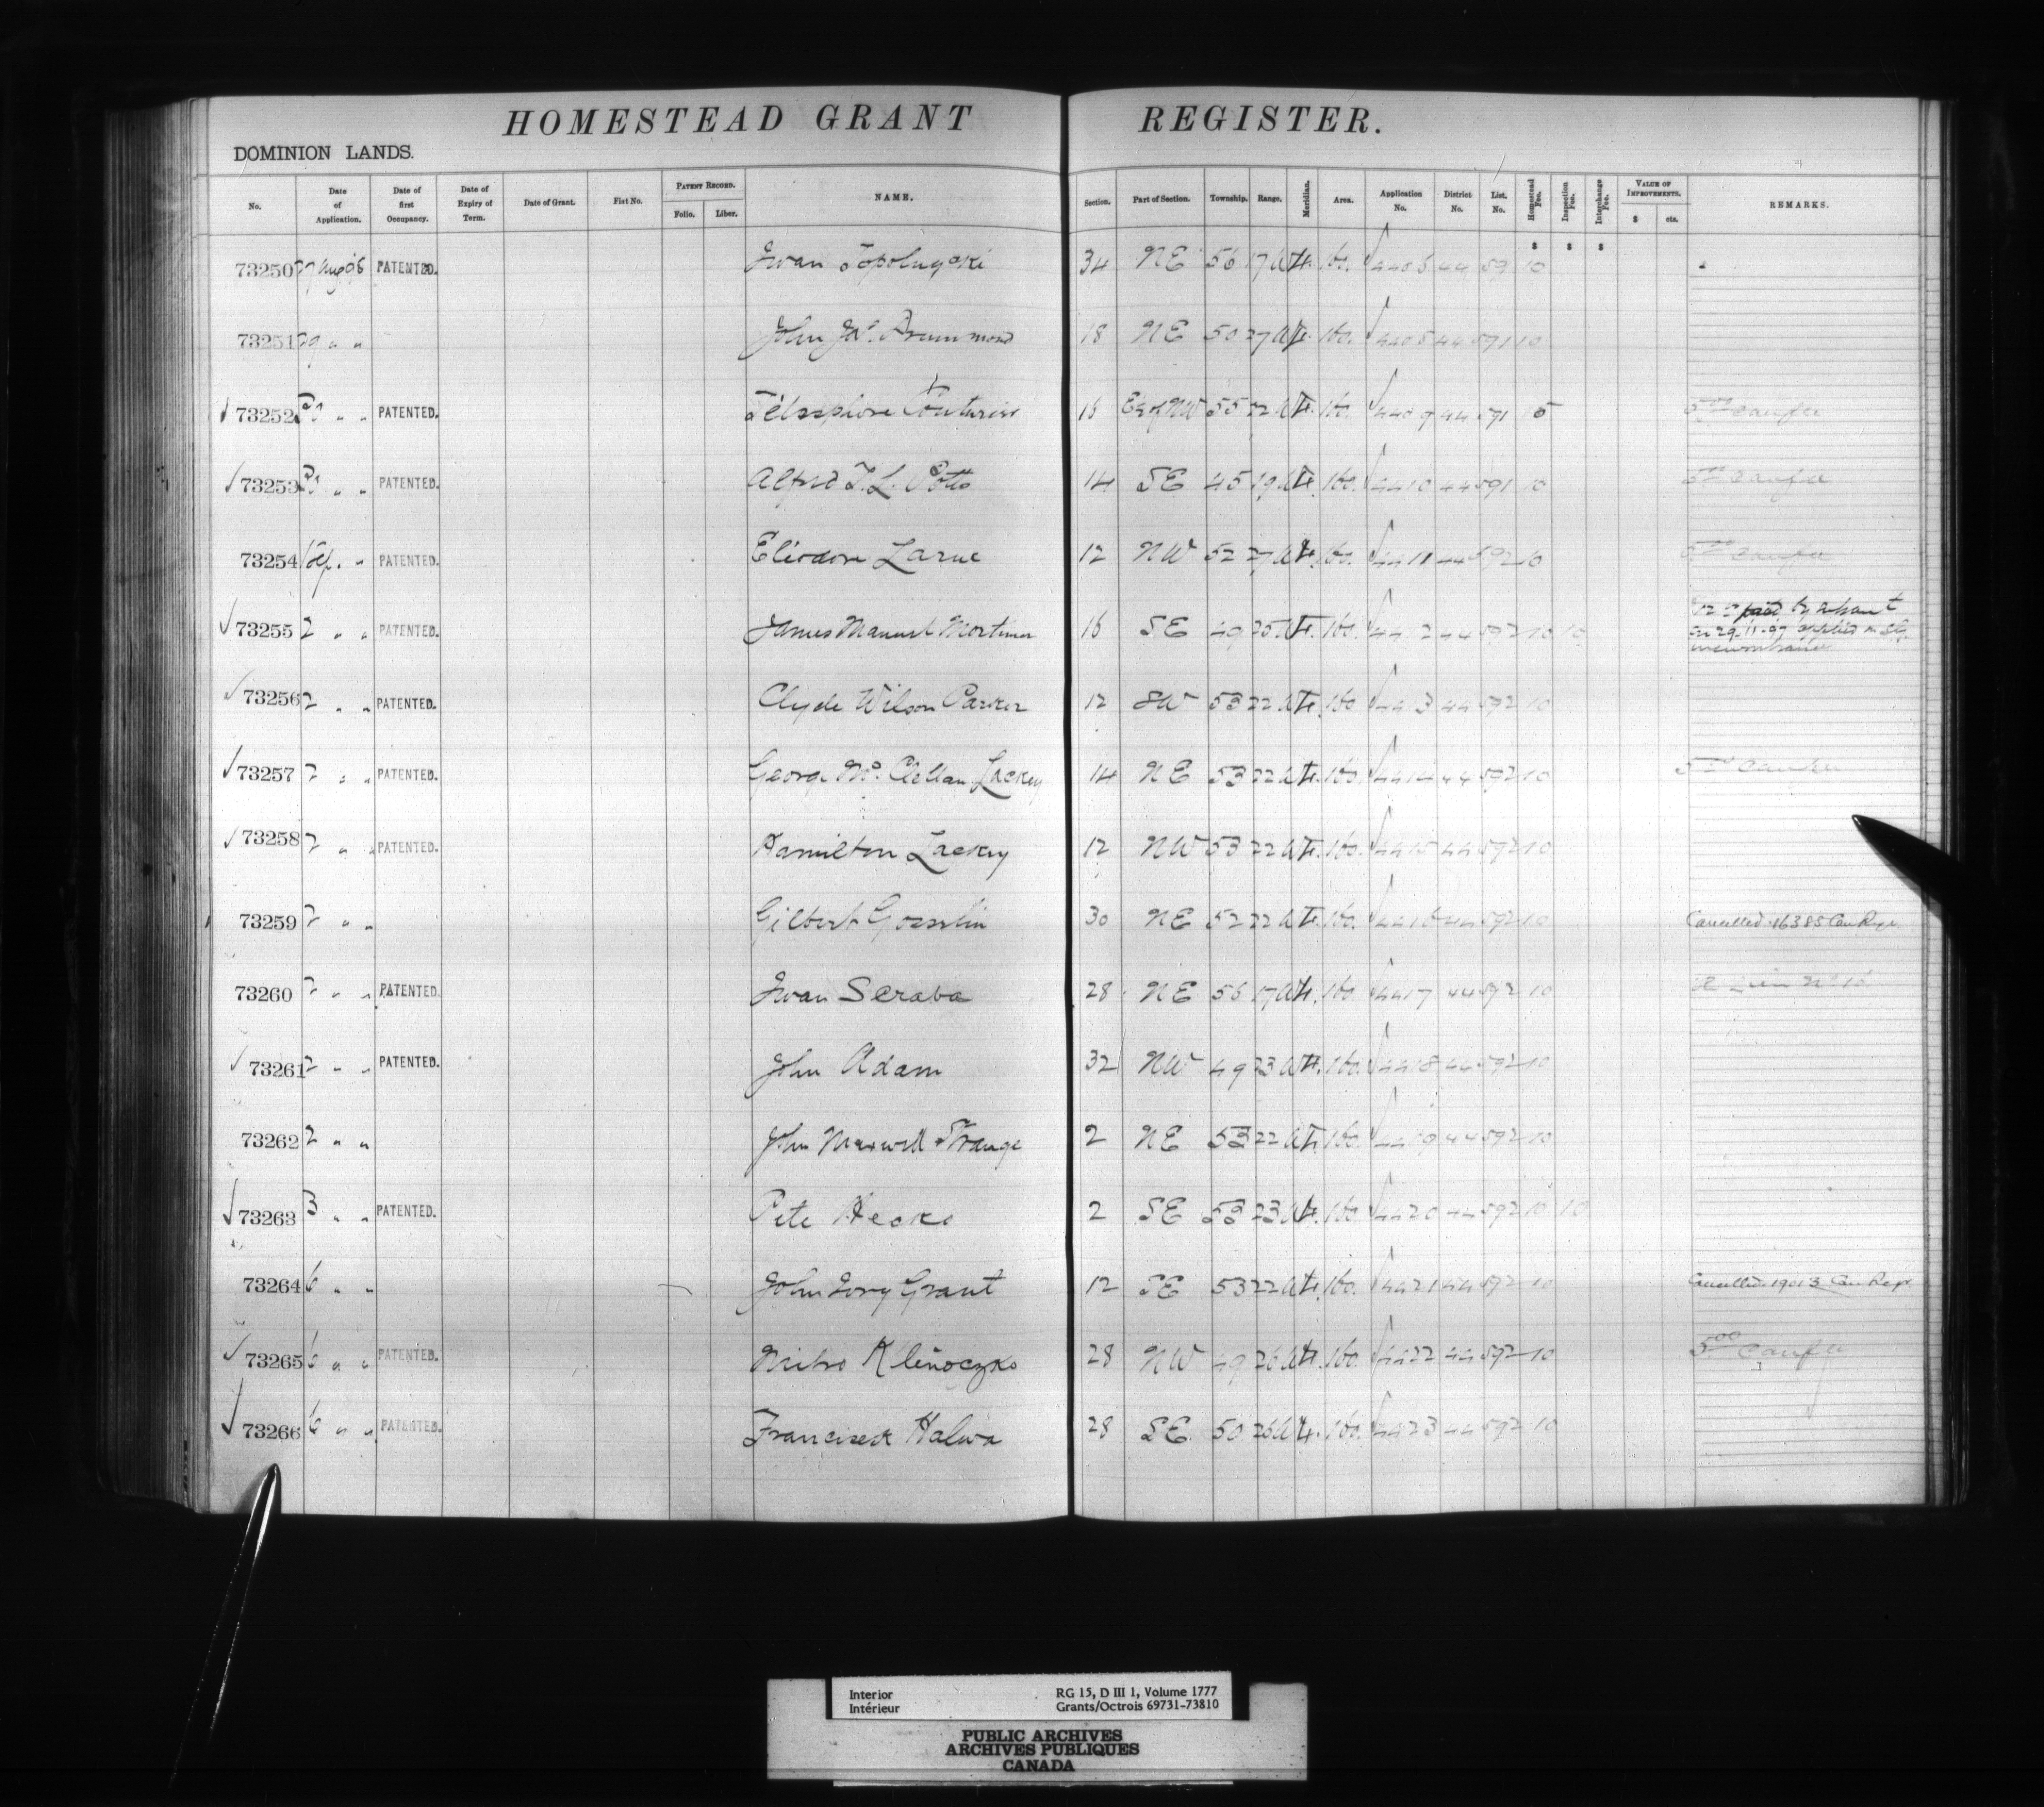 HOMESTEAD GRANT REGISTER.
DOMINION LANDS.
No. Date of Application. Date of first Occupancy. Date of Expiry of Term. Date of Grant. Fiat No. PATENT RECORD. Folio. Liber. NAME. Section. Part of Section. Township. Range. Meridian. Area. Application No. District No. List. No. Homestead Fee. Inspection Fee. Interchange Fee. VALUE OF IMPROVEMENTS. $ cts. REMARKS.
$ $ $
73250 27 Aug 98 PATENTED. Iwan 34 NE 56 17 W 4. 160. 4406 44 591 10
73251 29 " " John Jas. Drummond 18 NE 50 27 W 4. 160. 4408 44 591 10
73252 " " PATENTED. Télesphore Couturier 16 NW 55 22 W 4. 160. 4409 44 591 5
73253 " " PATENTED. Alfred T. L. Potts 14 SE 45 19 W 4. 160. 4410 44 591 10
73254 1 Sep. " PATENTED. Eliodore Larue 12 NW 52 27 W 4. 160. 4411 44 592 10
73255 2 " " PATENTED. James Manuel Mortimer 16 SE 49 25 W 4. 160. 4412 44 592 10 10
73256 2 " " PATENTED. Clyde Wilson Parker 12 SW 53 22 W 4. 160 4413 44 592 10
73257 2 " " PATENTED. George Mc. Clellan Lackey 14 NE 53 22 W 4. 160. 4414 44 592 10
73258 2 " " PATENTED. Hamilton Lackey 12 NW 53 22 W 4. 160. 4415 44 592 10
73259 2 " " Gilbert Gosselin 30 NE 52 22 W 4. 160. 4416 44 592 10 Cancelled 16385 Can Regr.
73260 2 " " PATENTED. Iwan Scraba 28 NE 56 17 W 4. 160. 4417 44 592 10
73261 2 " " PATENTED. John Adam 32 NW 49 23 W 4. 160. 4418 44 592 10
73262 2 " " John Maxwell Strange 2 NE 53 22 W 4. 160. 4419 44 592 10
73263 3 " " PATENTED. Pete 2 SE 53 23 W 4. 160. 4420 44 592 10 10
73264 6 " " John Grant 12 SE 53 22 W 4. 160. 4421 44 592 10 Cancelled 19013 Can Regr.
73265 6 " " PATENTED. 28 NW 49 26 W 4. 160. 4422 44 592 10 5.00
73266 6 " " PATENTED. Franciszek Halwa 28 SE 50 26 W 4. 160. 4423 44 592 10
Interior RG 15, D III 1, Volume 1777
Intérieur Grants/Octrois 69731-73810
PUBLIC ARCHIVES
ARCHIVES PUBLIQUES
CANADA